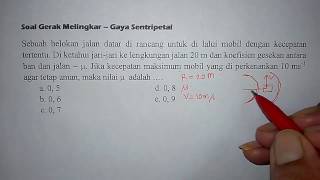 Soal Gerak Melingkar – Gaya Sentripetal
Sebuah belokan jalan datar di rancang untuk di lalui mobil dengan kecepatan
tertentu. Di ketahui jari-jari ke lengkungan jalan 20 m dan koefisien gesekan antara
ban dan jalan = μ. Jika kecepatan maksimum mobil yang di perkenankan 10 ms⁻¹
agar tetap aman, maka nilai μ adalah ....
a. 0, 5 d. 0, 8
b. 0, 6 e. 0, 9
c. 0, 7
R = 20 m
μ
V = 10 m/s